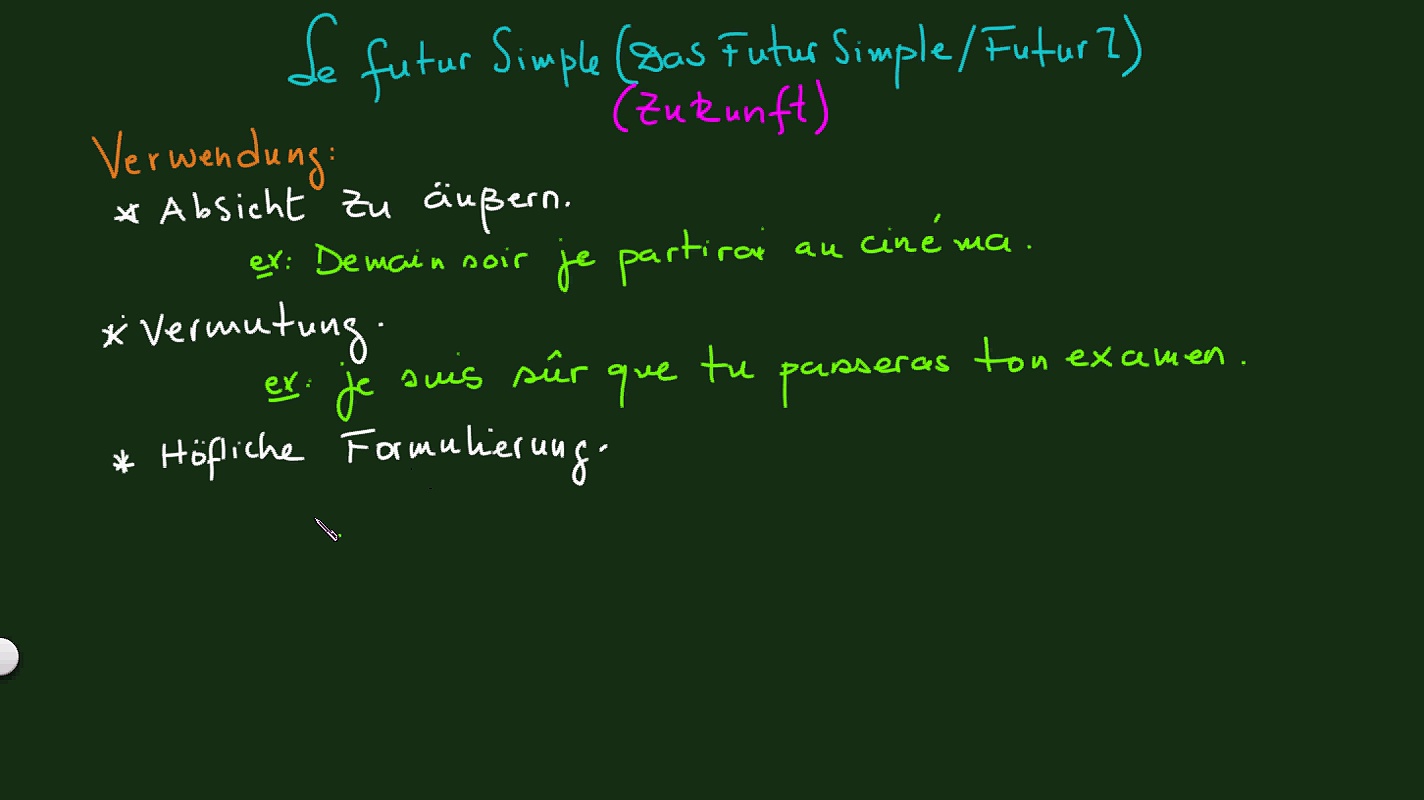 Le futur Simple (Das Futur Simple/Futur I)
(Zukunft)
Verwendung:
* Absicht zu äußern.
ex: Demain soir je partirai au cinéma.
* Vermutung.
ex: je suis sûr que tu passeras ton examen.
* Höfliche Formulierung.